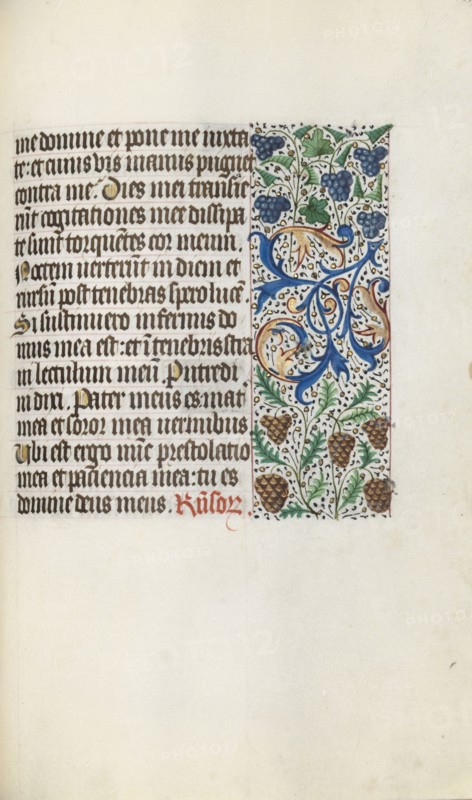 me domine et pone me iuxta
te: et cuius vis manus pugnet
contra me. Dies mei transie
rūt cogitationes mee dissipa
te sunt torquētes cor meum.
Noctem verterūt in diem et
rursū post tenebras spero lucē.
Si sustinuero infernus do
mus mea est: et ī tenebris stra
ui lectulum meū. Putredi
ni dixi. Pater meus es mat̄
mea et soror mea vermibus
Vbi est ergo nūc prestolatio
mea et paciencia mea: tu es
domine deus meus.